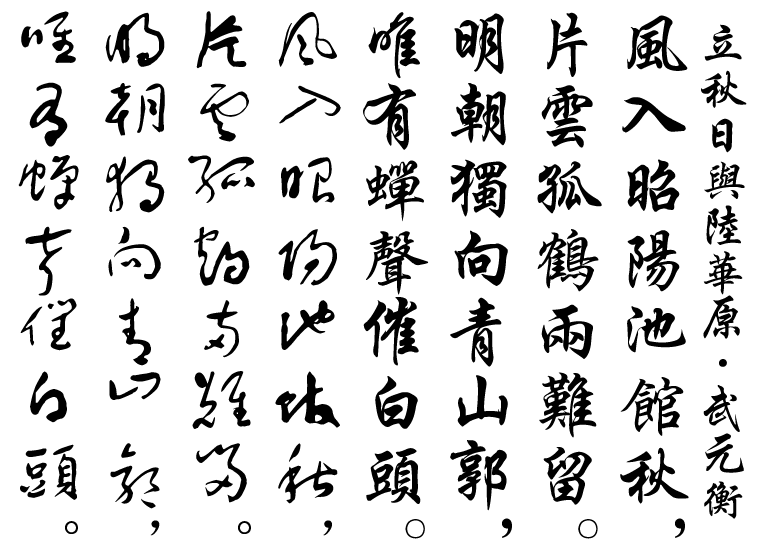 立秋日與陸華原·武元衡
風入昭陽池館秋,
片雲孤鶴兩難留。
明朝獨向青山郭,
唯有蟬聲催白頭。
風入昭陽池館秋,
片雲孤鶴兩難留。
明朝獨向青山郭,
唯有蟬聲催白頭。